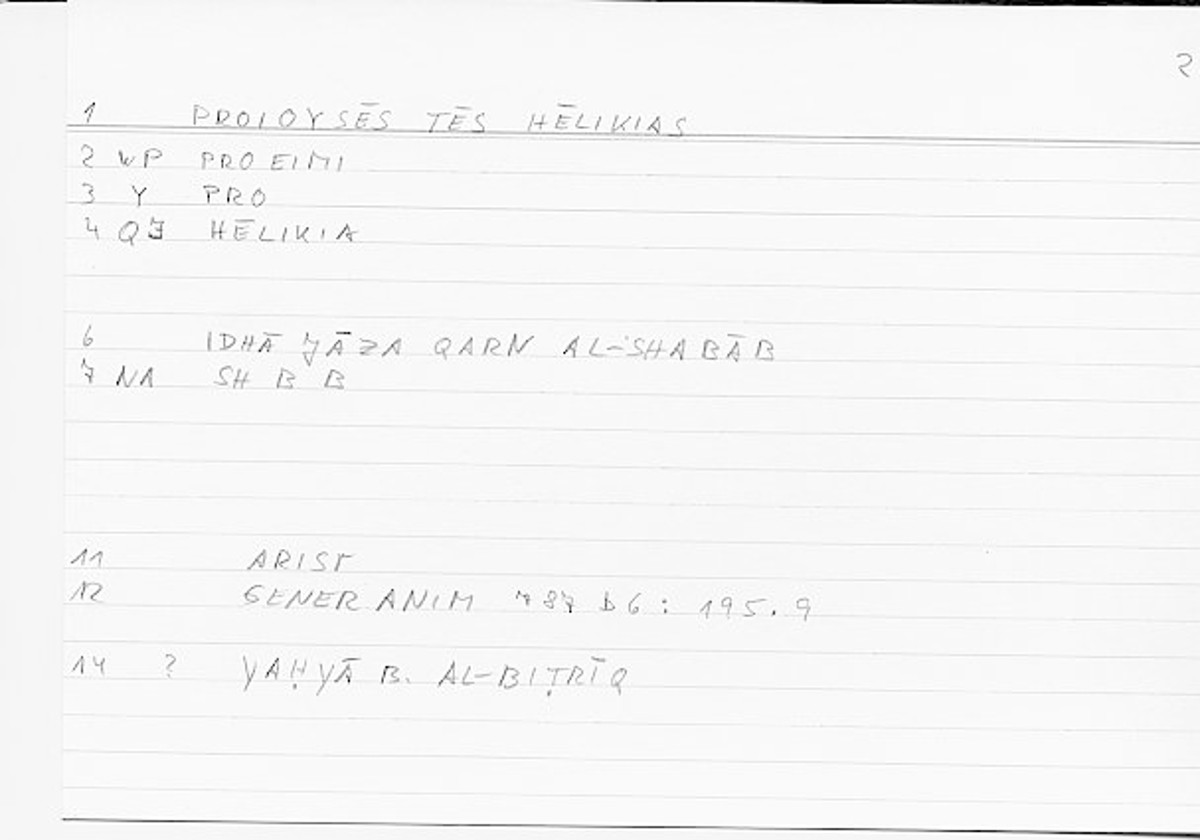 2
1 PROIOYSĒS TĒS HĒLIKIAS
2 WP PROEIMI
3 Y PRO
4 QJ HĒLIKIA
6 IDHĀ JĀZA QARN AL-SHABĀB
7 NA SH B B
11 ARIST
12 GENER ANIM 787 b 6 : 195.9
14 ? YAḤYĀ B. AL-BIṬRĪQ